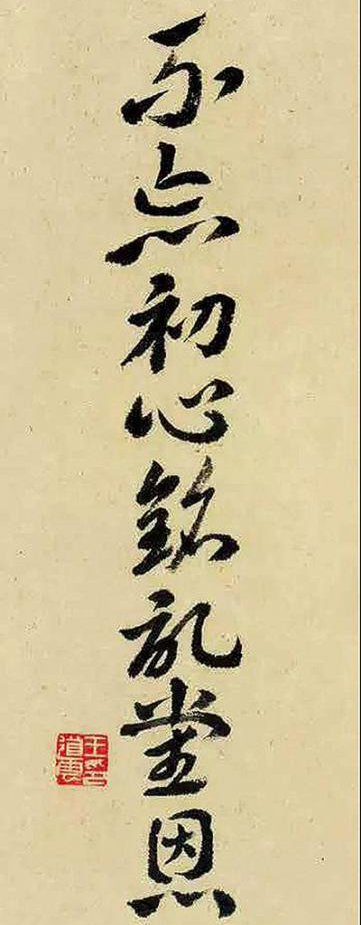 不忘初心銘記黨恩
王印
道雲